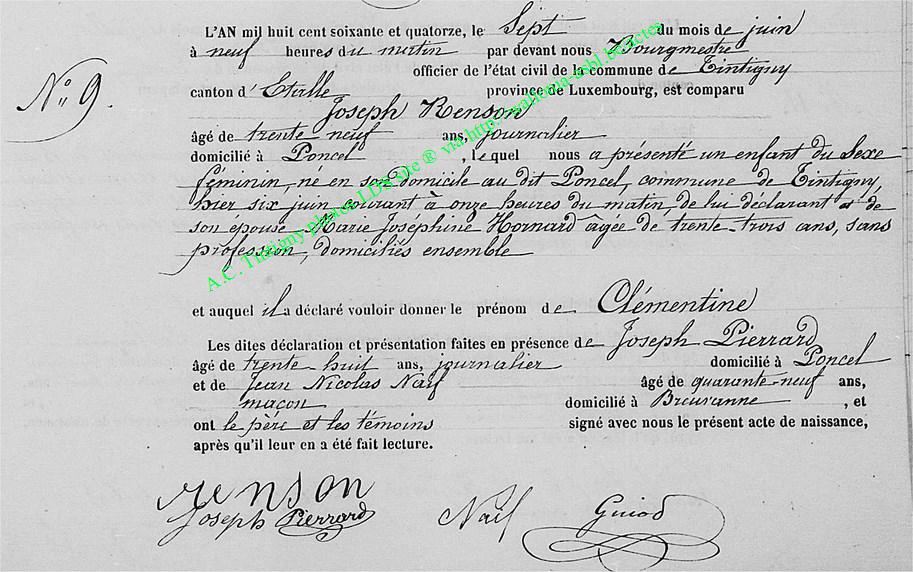 L'AN mil huit cent soixante et quatorze, le Sept du mois de juin
à neuf heures du matin par devant nous Bourgmestre
officier de l'état civil de la commune de Tintigny
N° 9.
canton d'Etalle province de Luxembourg, est comparu
Joseph Renson
âgé de trente neuf ans, journalier
domicilié à Poncel, lequel nous a présenté un enfant du Sexe
féminin, né en son domicile au dit Poncel, commune de Tintigny,
hier six juin courant à onze heures du matin, de lui déclarant et de
son épouse Marie Joséphine Hornard âgée de trente-trois ans, sans
profession, domiciliés ensemble
et auquel il a déclaré vouloir donner le prénom de Clémentine
Les dites déclaration et présentation faites en présence de Joseph Pierrard
âgé de trente huit ans, journalier domicilié à Poncel
et de Jean Nicolas Naif âgé de quarante-neuf ans,
maçon domicilié à Breuvanne, et
ont le père et les témoins signé avec nous le présent acte de naissance,
après qu'il leur en a été fait lecture.
renson
Joseph Pierrard Naif Guiod
A.C. Tintigny photos LDS vue ® via http://wallonia-asbl.be/actes